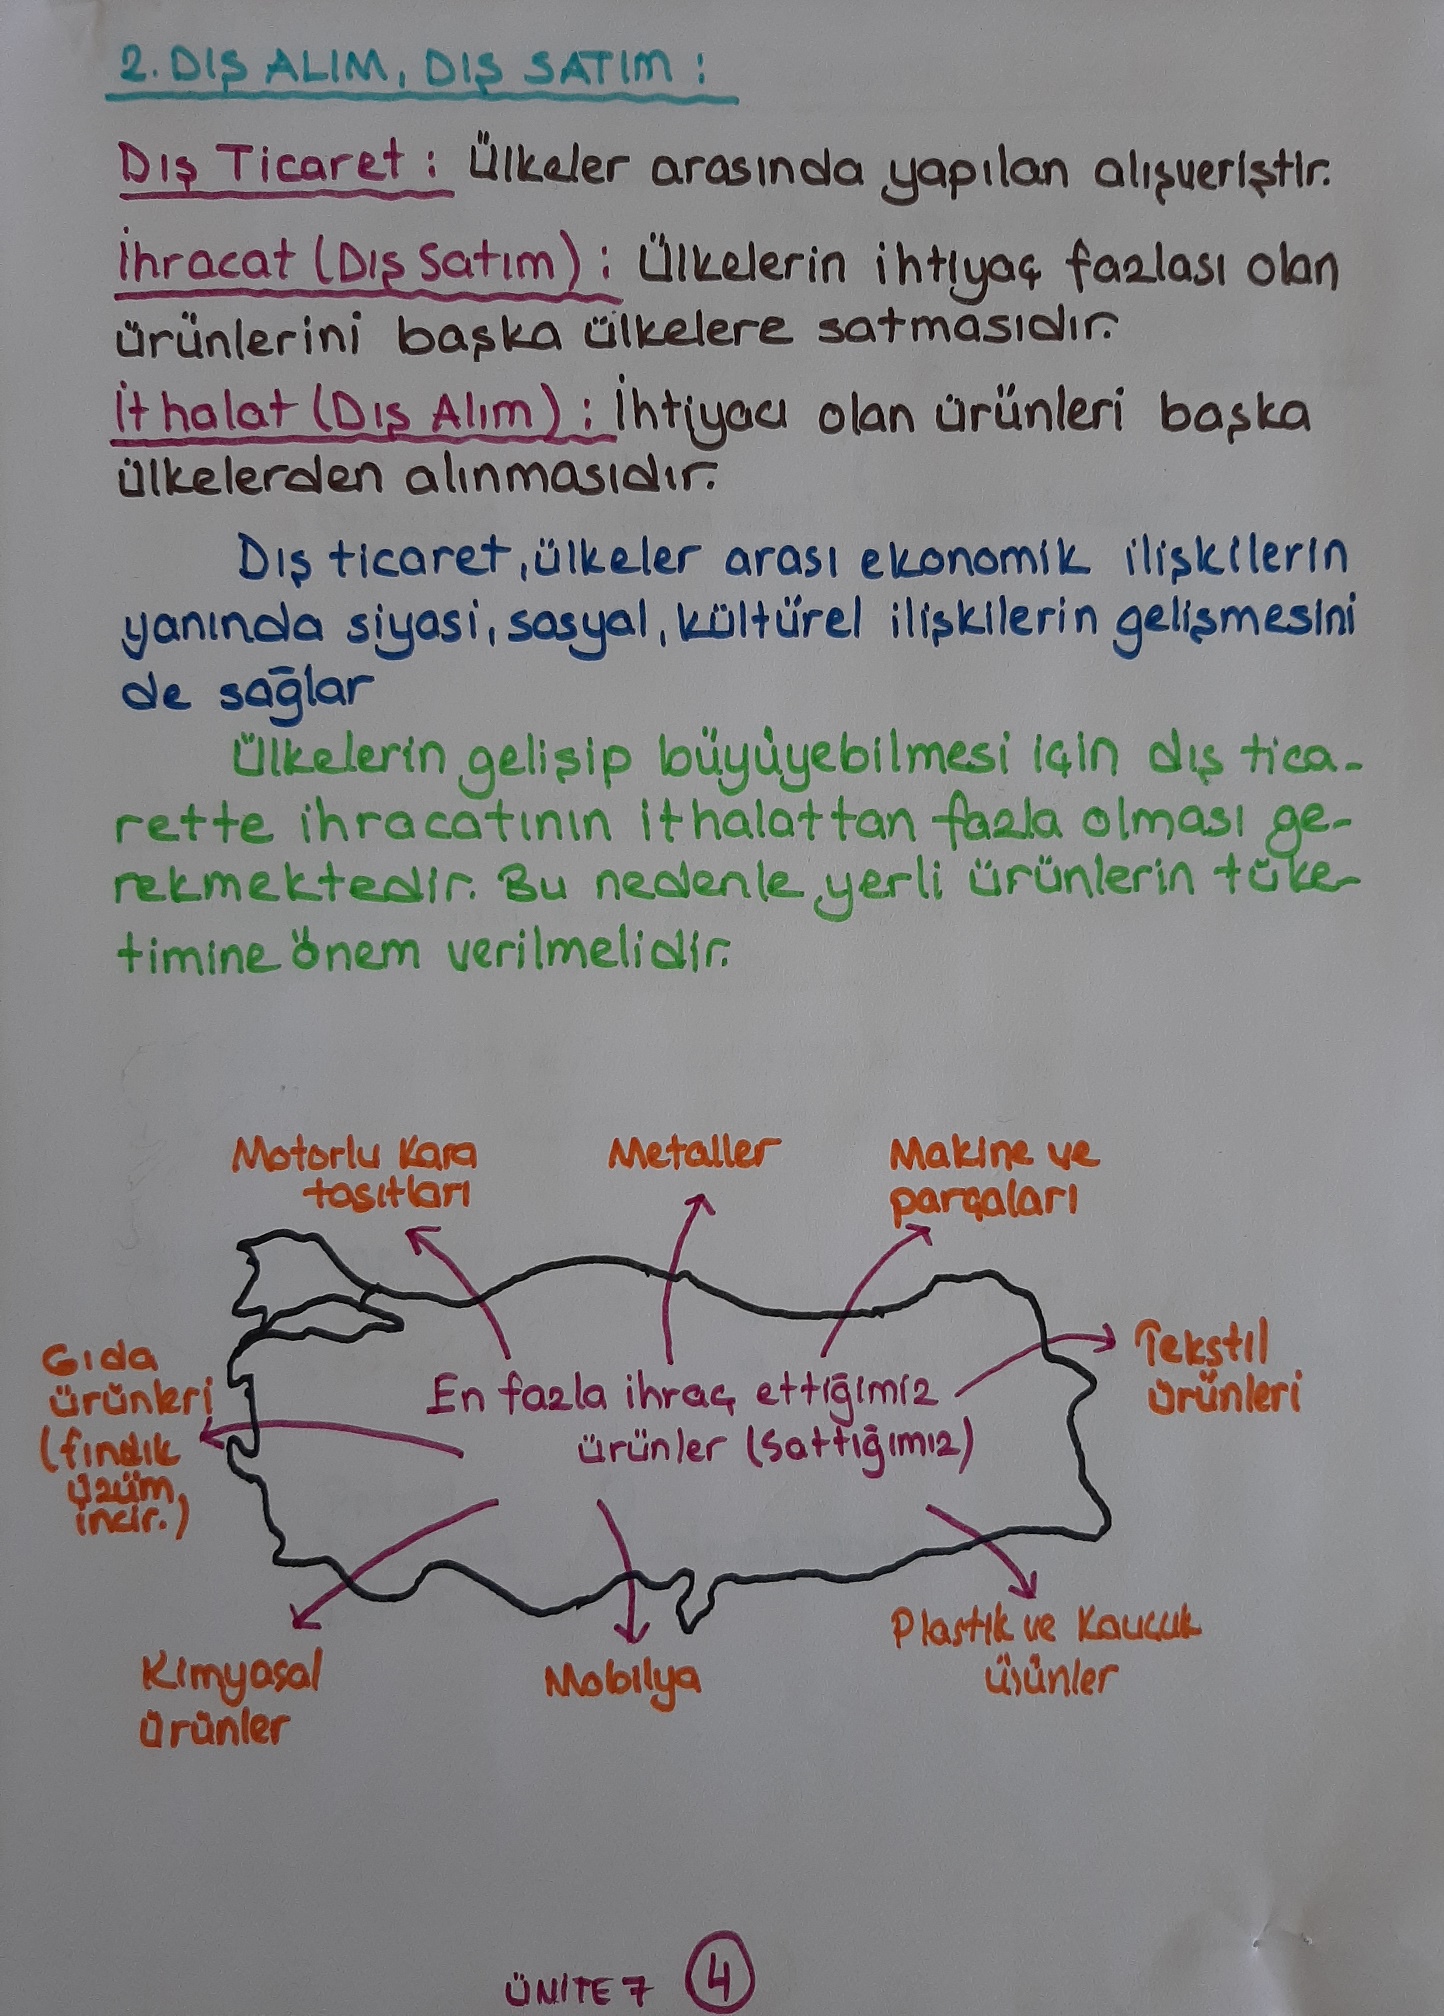 2. DIŞ ALIM, DIŞ SATIM :
Dış Ticaret : Ülkeler arasında yapılan alışveriştir.
İhracat (Dış Satım) : Ülkelerin ihtiyaç fazlası olan
ürünlerini başka ülkelere satmasıdır.
İthalat (Dış Alım) : İhtiyacı olan ürünleri başka
ülkelerden alınmasıdır.
Dış ticaret, ülkeler arası ekonomik ilişkilerin
yanında siyasi, sosyal, kültürel ilişkilerin gelişmesini
de sağlar
Ülkelerin gelişip büyüyebilmesi için dış tica-
rette ihracatının ithalattan fazla olması ge-
rekmektedir. Bu nedenle yerli ürünlerin tüke-
timine önem verilmelidir.
Motorlu Kara
taşıtları
Metaller
Makine ve
parçaları
Tekstil
ürünleri
Gıda
ürünleri
(fındık
üzüm,
incir.)
En fazla ihraç ettiğimiz
ürünler (sattığımız)
Kimyasal
ürünler
Mobilya
Plastik ve Kauçuk
ürünler
ÜNİTE 7 4